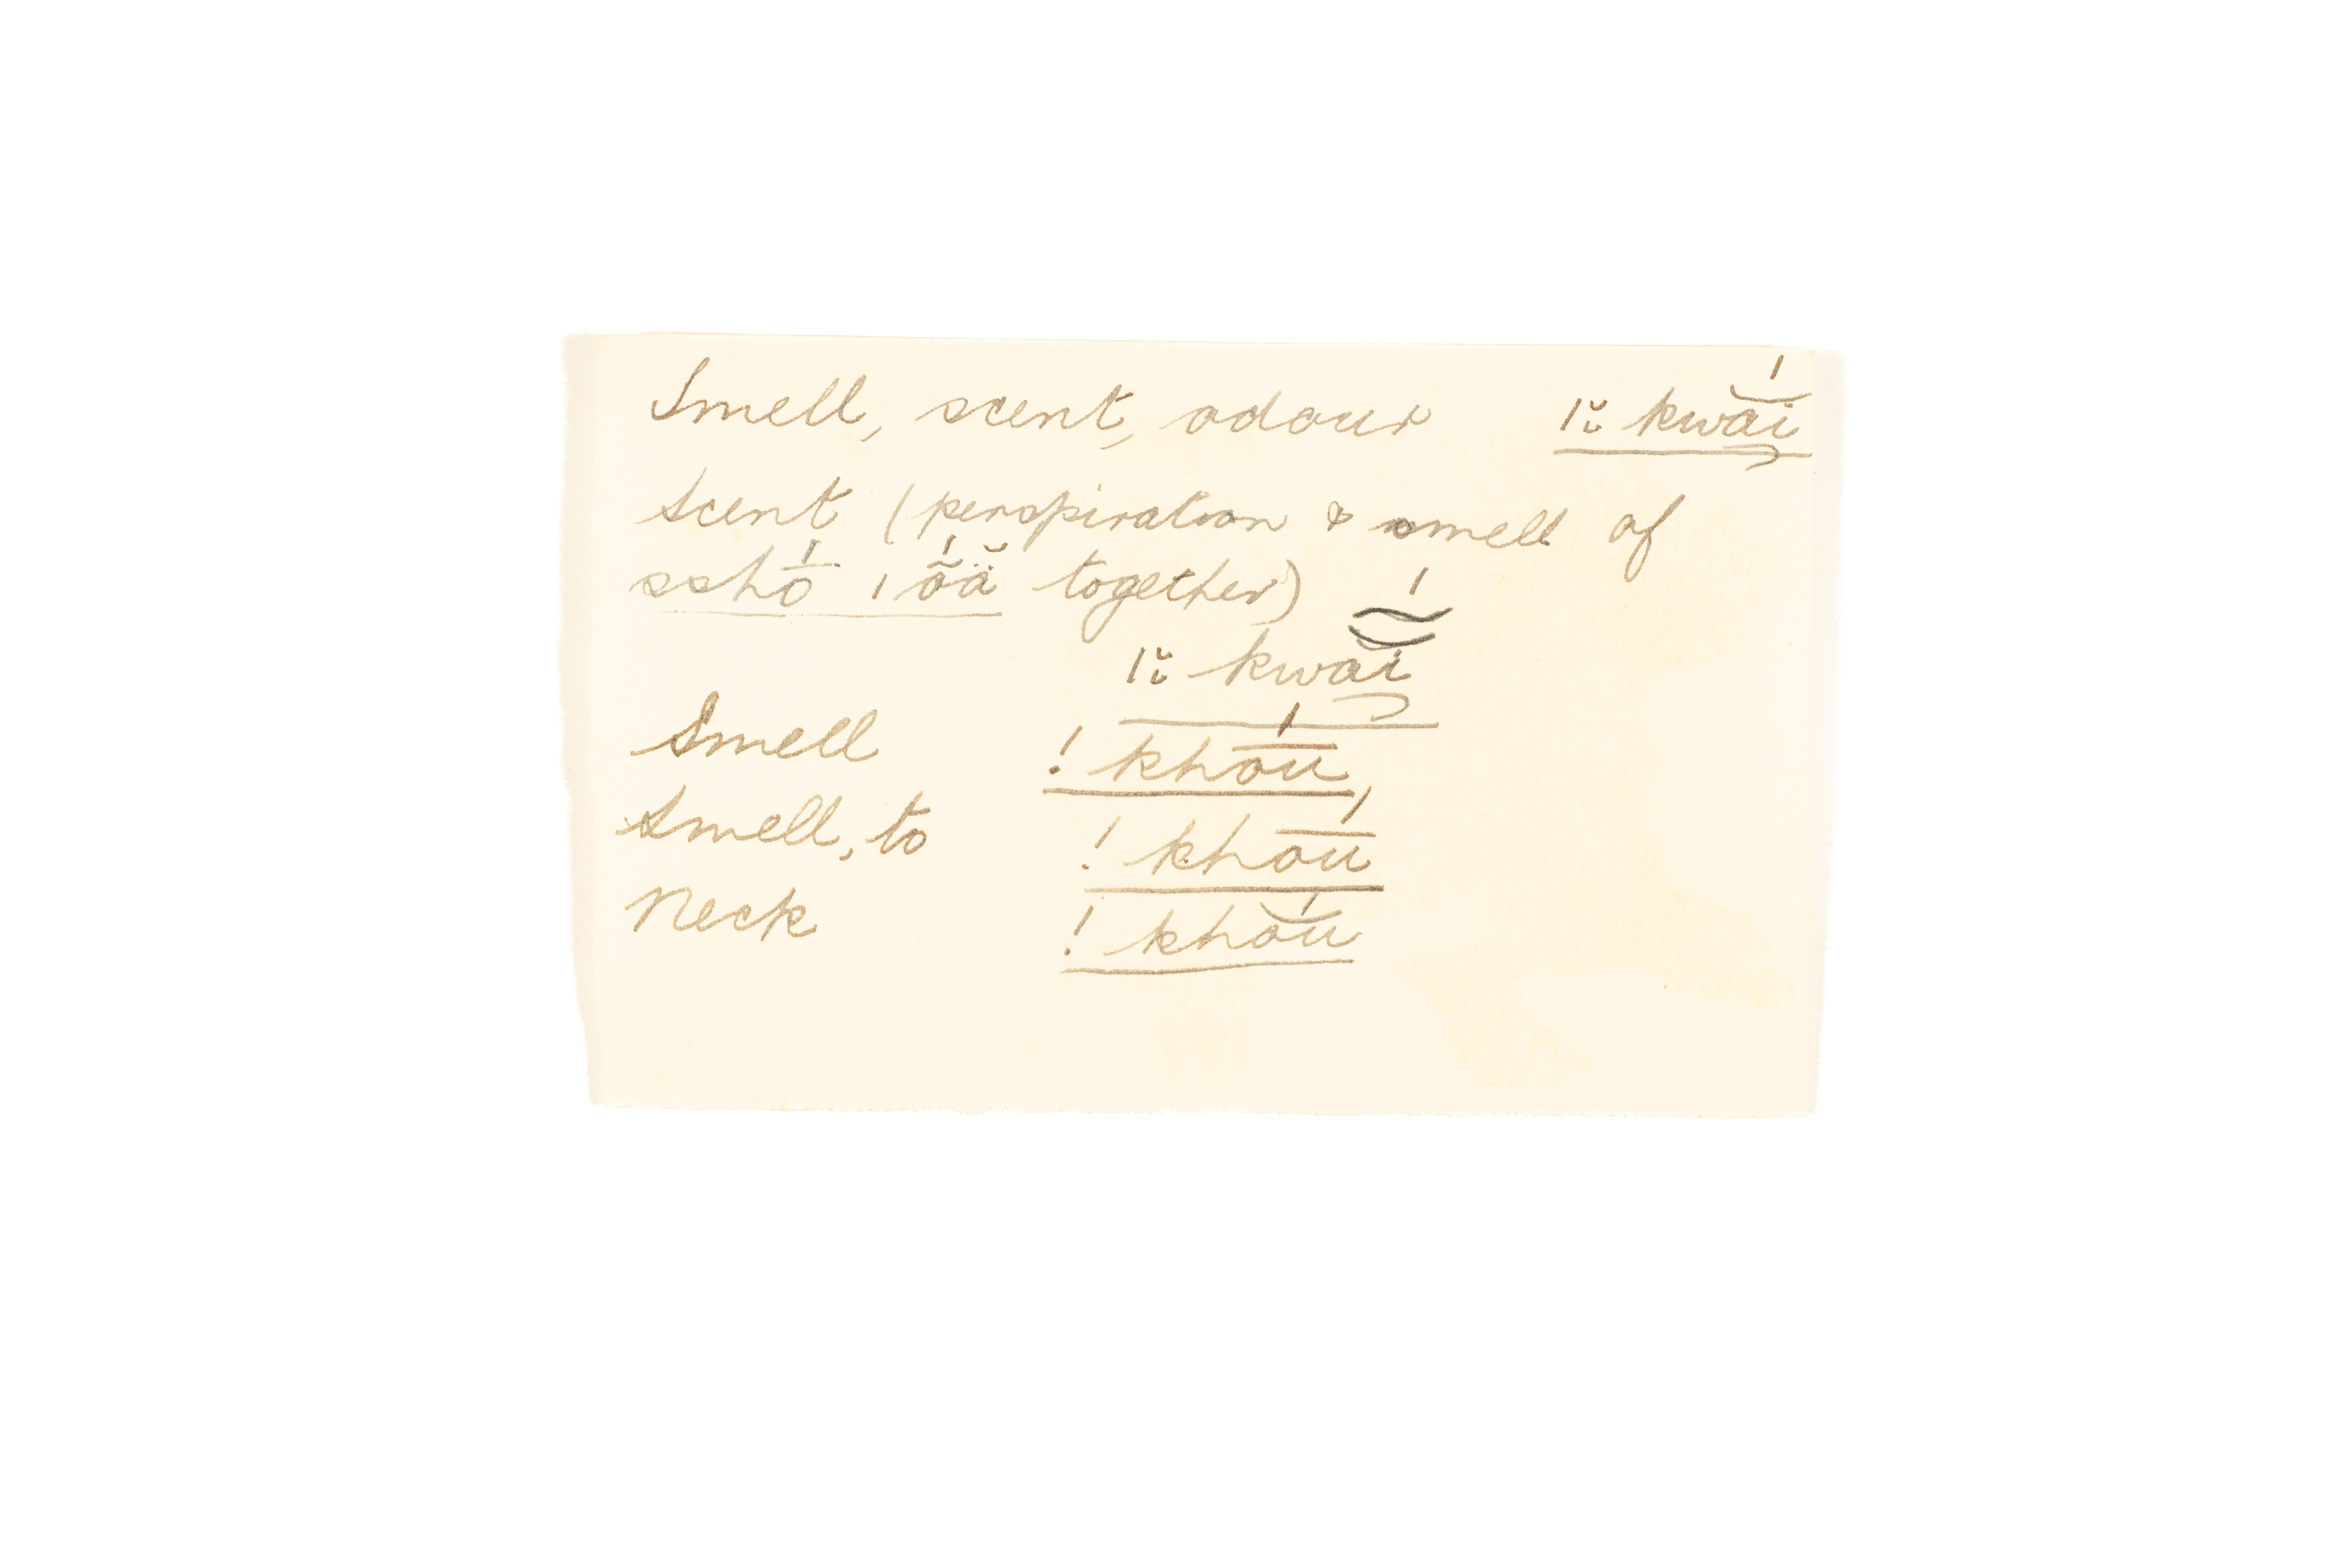 Smell, scent, odour ǀĭ̤ kwắi
Scent (perspiration & smell of
sshṓ ǀṍä̆ together)
ǀĭ̤ kwãĭ́
Smell ! khōú
Smell, to ! khōú
Neck ! khŏú